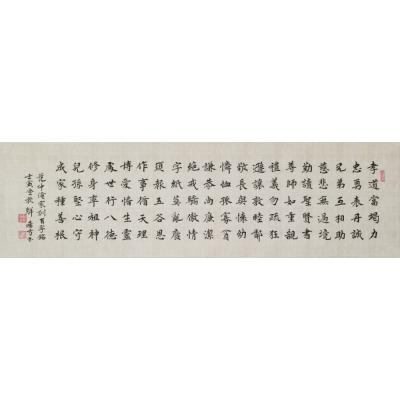 孝道當竭力
忠勇表丹誠
兄弟互相助
慈悲無過境
勤讀聖賢書
尊師如重親
禮義勿疏狂
遜讓敦睦鄰
敬長與懷幼
憐恤孤寡貧
謙恭尚廉潔
絕戒驕傲情
字紙莫亂廢
須報五谷恩
作事循天理
博愛惜生靈
處世行八德
修身率祖神
兒孫堅心守
成家種善根
范仲淹家訓百字銘
壬寅金秋